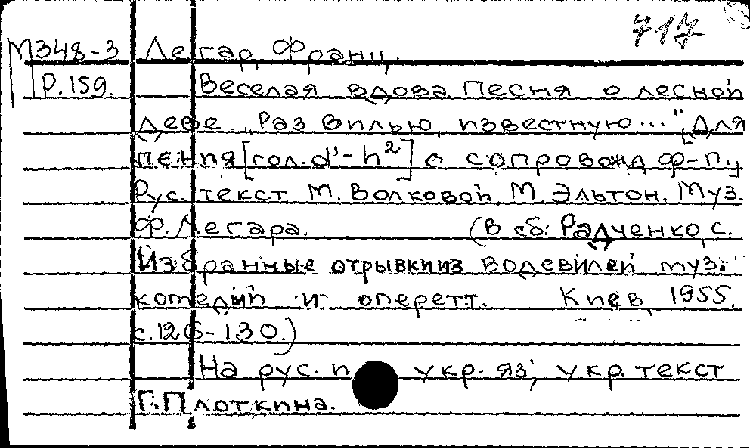 717
М348-3 Легар, Франц.
Р.159. Веселая вдова. Песня о лесной
деве „Раз вилью известную..." Для
пения [гол. d¹-h²] с сопровожд. ф-п.
Рус. текст М. Волковой, М. Эльтон. Муз.
Ф. Легара. (В сб: Радченко, С.
Избранные отрывки из водевилей муз.
комедий и оперетт. Киев, 1955.
с.126-130.)
На рус. и укр. яз; укр. текст
Г. Плоткина.